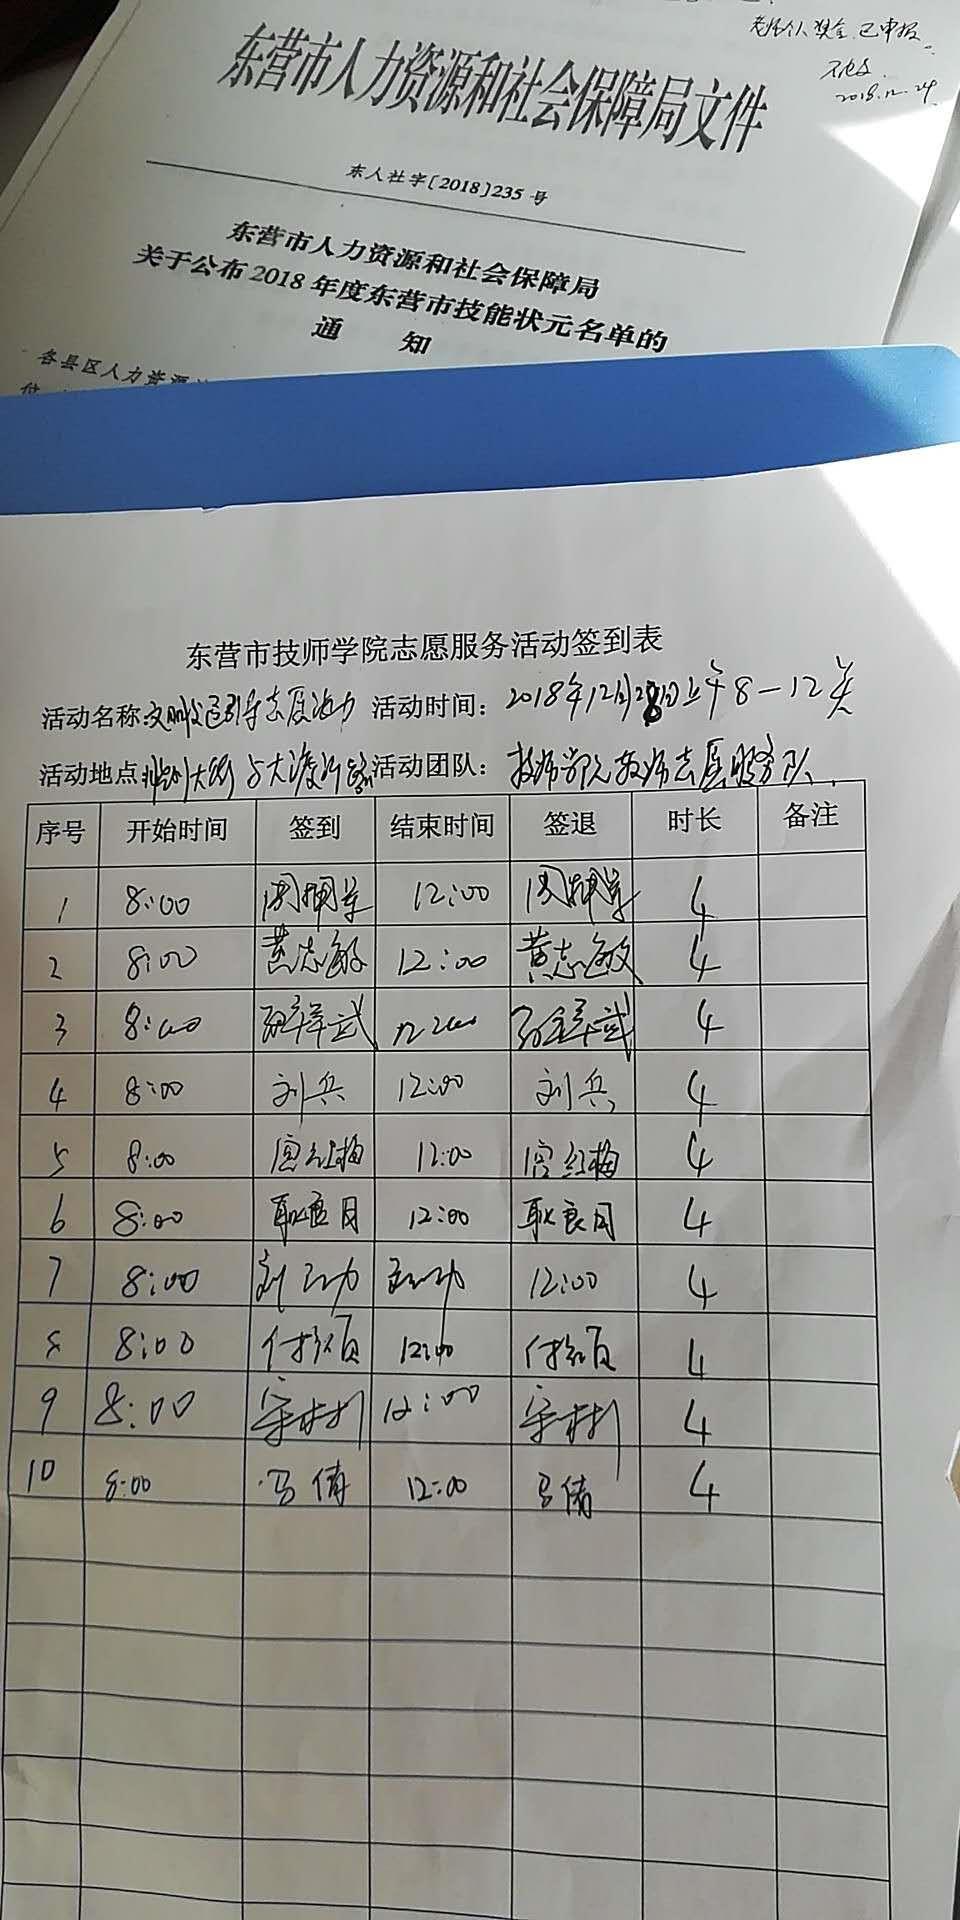 老师个人奖金已申报
2018.12.24
东营市人力资源和社会保障局文件
东人社字〔2018〕235号
东营市人力资源和社会保障局
关于公布2018年度东营市技能状元名单的
通 知
各县区人力资源
东营市技师学院志愿服务活动签到表
活动名称:文明交通引导志愿活动 活动时间: 2018年12月28日上午8-12点
活动地点 大街与大渡河路 活动团队: 技师学院教师志愿服务队
序号 开始时间 签到 结束时间 签退 时长 备注
1 8:00 12:00 4
2 8:00 黄志敏 12:00 黄志敏 4
3 8:00 12:00 4
4 8:00 刘兵 12:00 刘兵 4
5 8:00 宫红梅 12:00 宫红梅 4
6 8:00 耿良月 12:00 耿良月 4
7 8:00 12:00 4
8 8:00 12:00 4
9 8:00 12:00 4
10 8:00 马倩 12:00 马倩 4